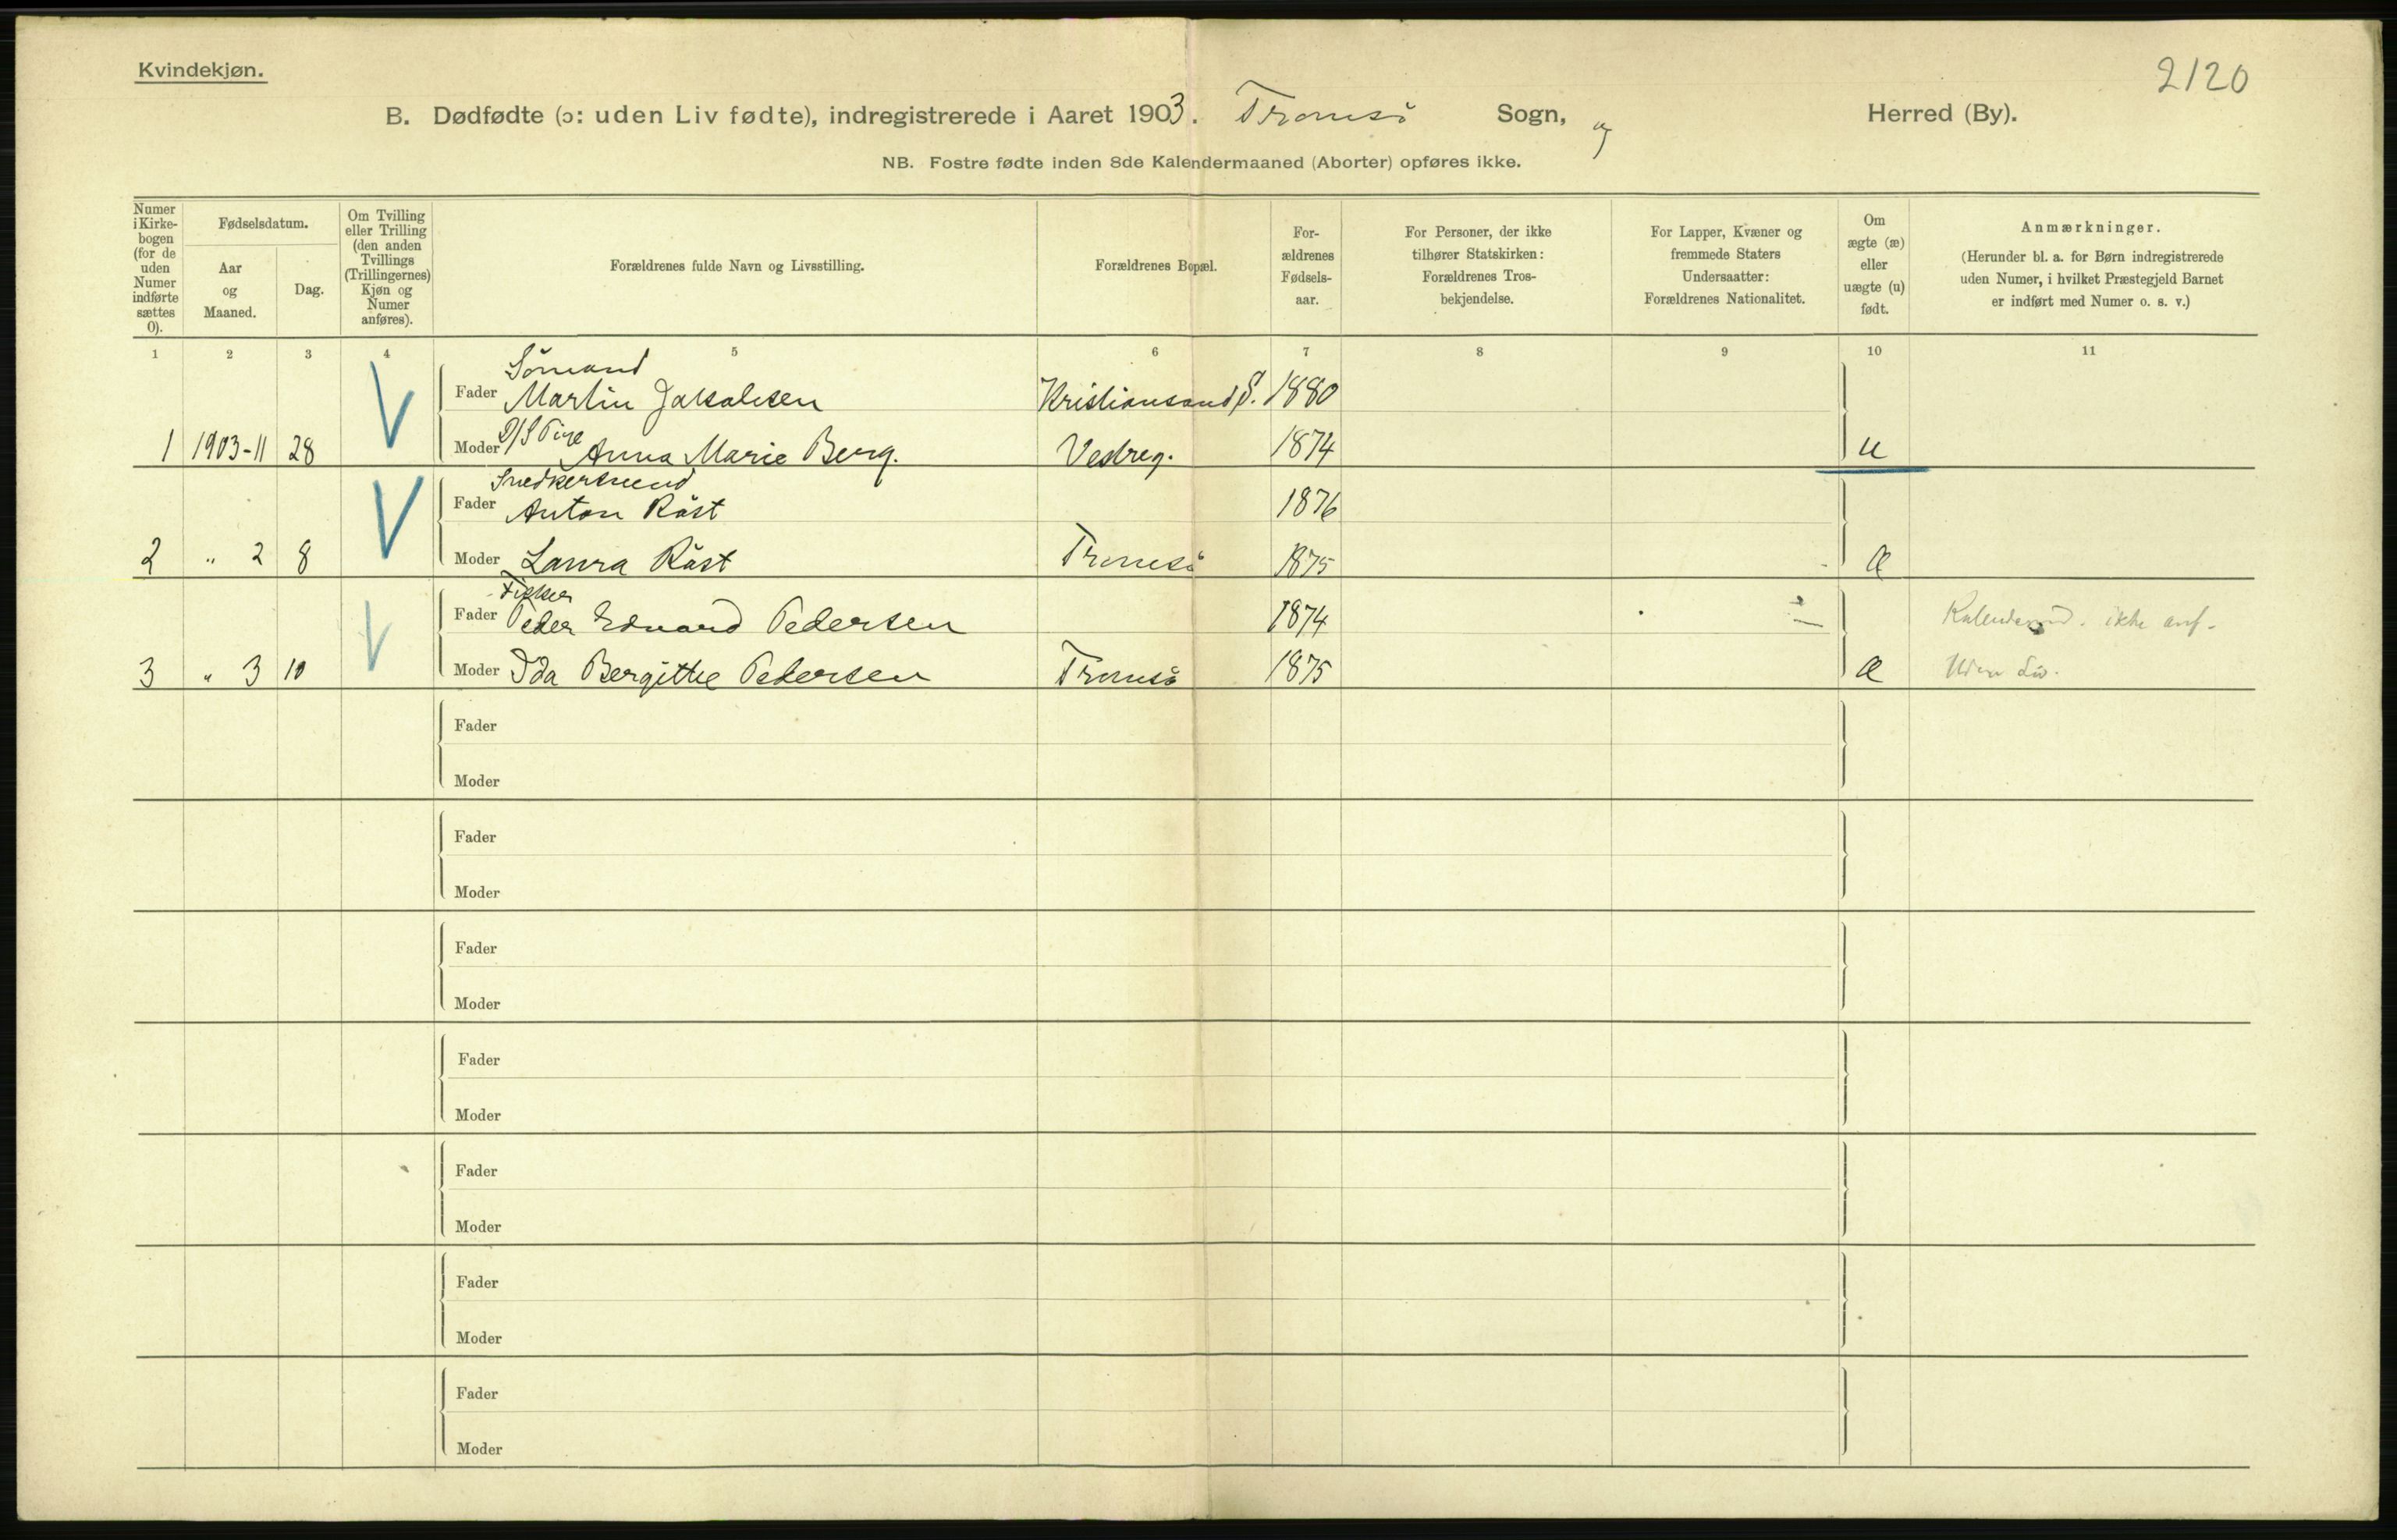 Kvindekjøn.
2120
B. Dødfødte (ɔ: uden Liv fødte), indregistrerede i Aaret 1903. Tromsö Sogn, Herred (By).
NB. Fostre fødte inden 8de Kalendermaaned (Aborter) opføres ikke.
Numer i Kirke- bogen (for de uden Numer indførte sættes 0).
Fødselsdatum.
Aar og Maaned.
Dag.
Om Tvilling eller Trilling (den anden Tvillings (Trillingernes) Kjøn og Numer anføres).
Forældrenes fulde Navn og Livsstilling.
Forældrenes Bopæl.
For- ældrenes Fødsels- aar.
For Personer, der ikke tilhører Statskirken: Forældrenes Tros- bekjendelse.
For Lapper, Kvæner og fremmede Staters Undersaatter: Forældrenes Nationalitet.
Om ægte (æ) eller uægte (u) født.
Anmærkninger.
(Herunder bl. a. for Børn indregistrerede uden Numer, i hvilket Præstegjeld Barnet er indført med Numer o. s. v.)
1 2 3 4 5 6 7 8 9 10 11
Sömand
Fader Martin Jakobsen Kristiansand S. 1880
1 1903-11 28 Moder Pige Anna Marie Berg. Vestreg. 1874 u
Snedkersvend
Fader Anton Råst 1876
2 " 2 8 Moder Laura Råst Tromsö 1875 Æ
Fisker
Fader Peder Edvard Pedersen 1874 ikke
3 " 3 10 Moder Ida Bergitte Pedersen Tromsö 1875 Æ Uden Liv.
Fader
Moder
Fader
Moder
Fader
Moder
Fader
Moder
Fader
Moder
Fader
Moder
Fader
Moder